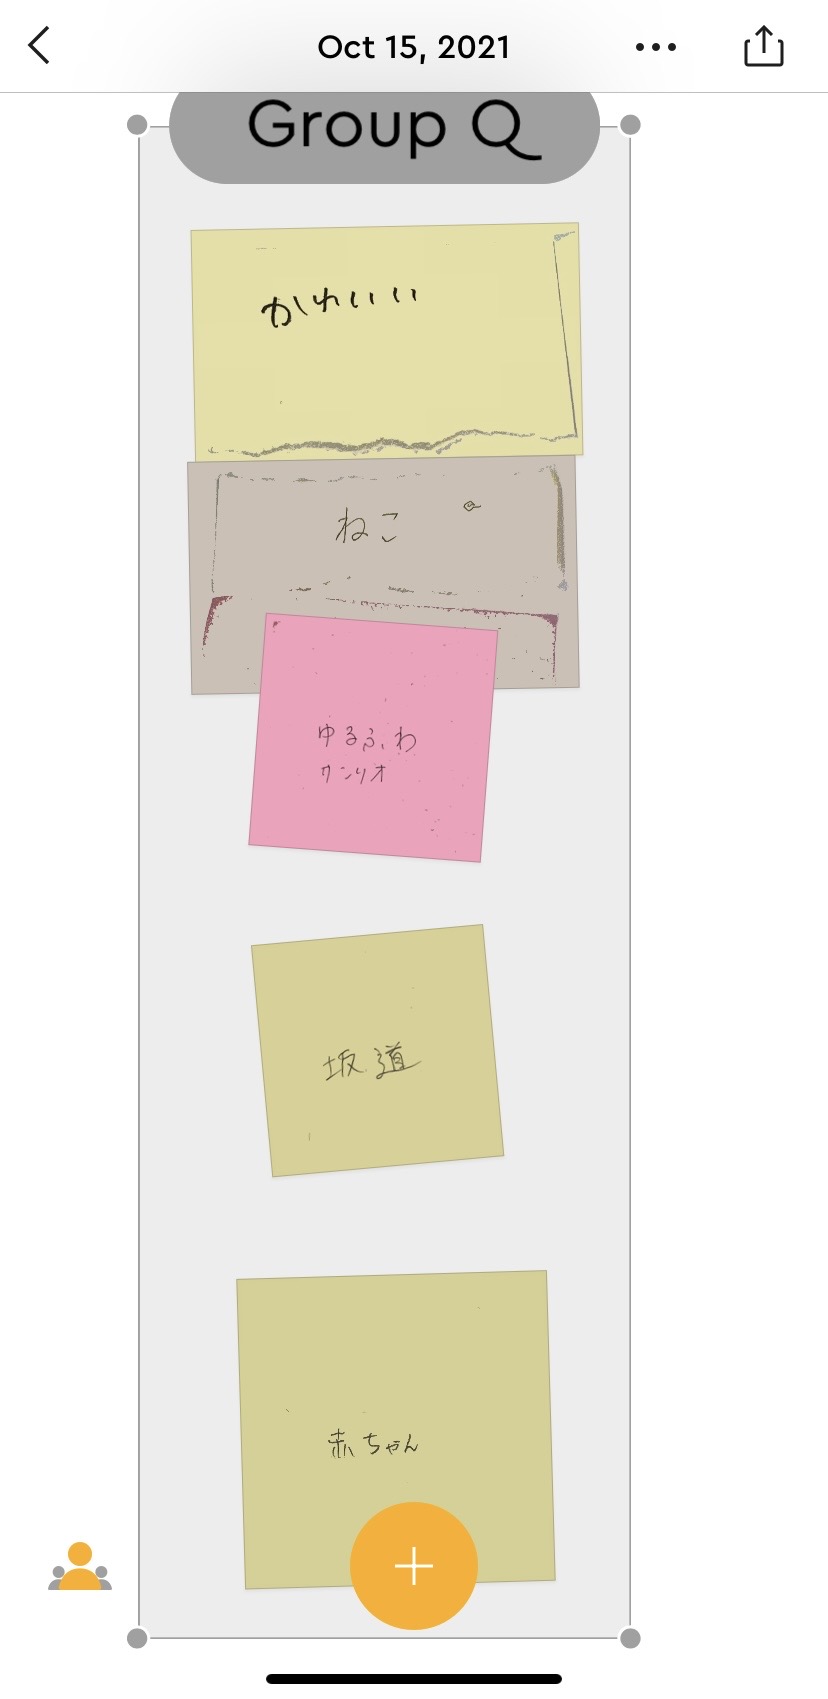 Oct 15, 2021
Group Q
かわいい
ねこ
ゆるふわ
サンリオ
坂道
赤ちゃん